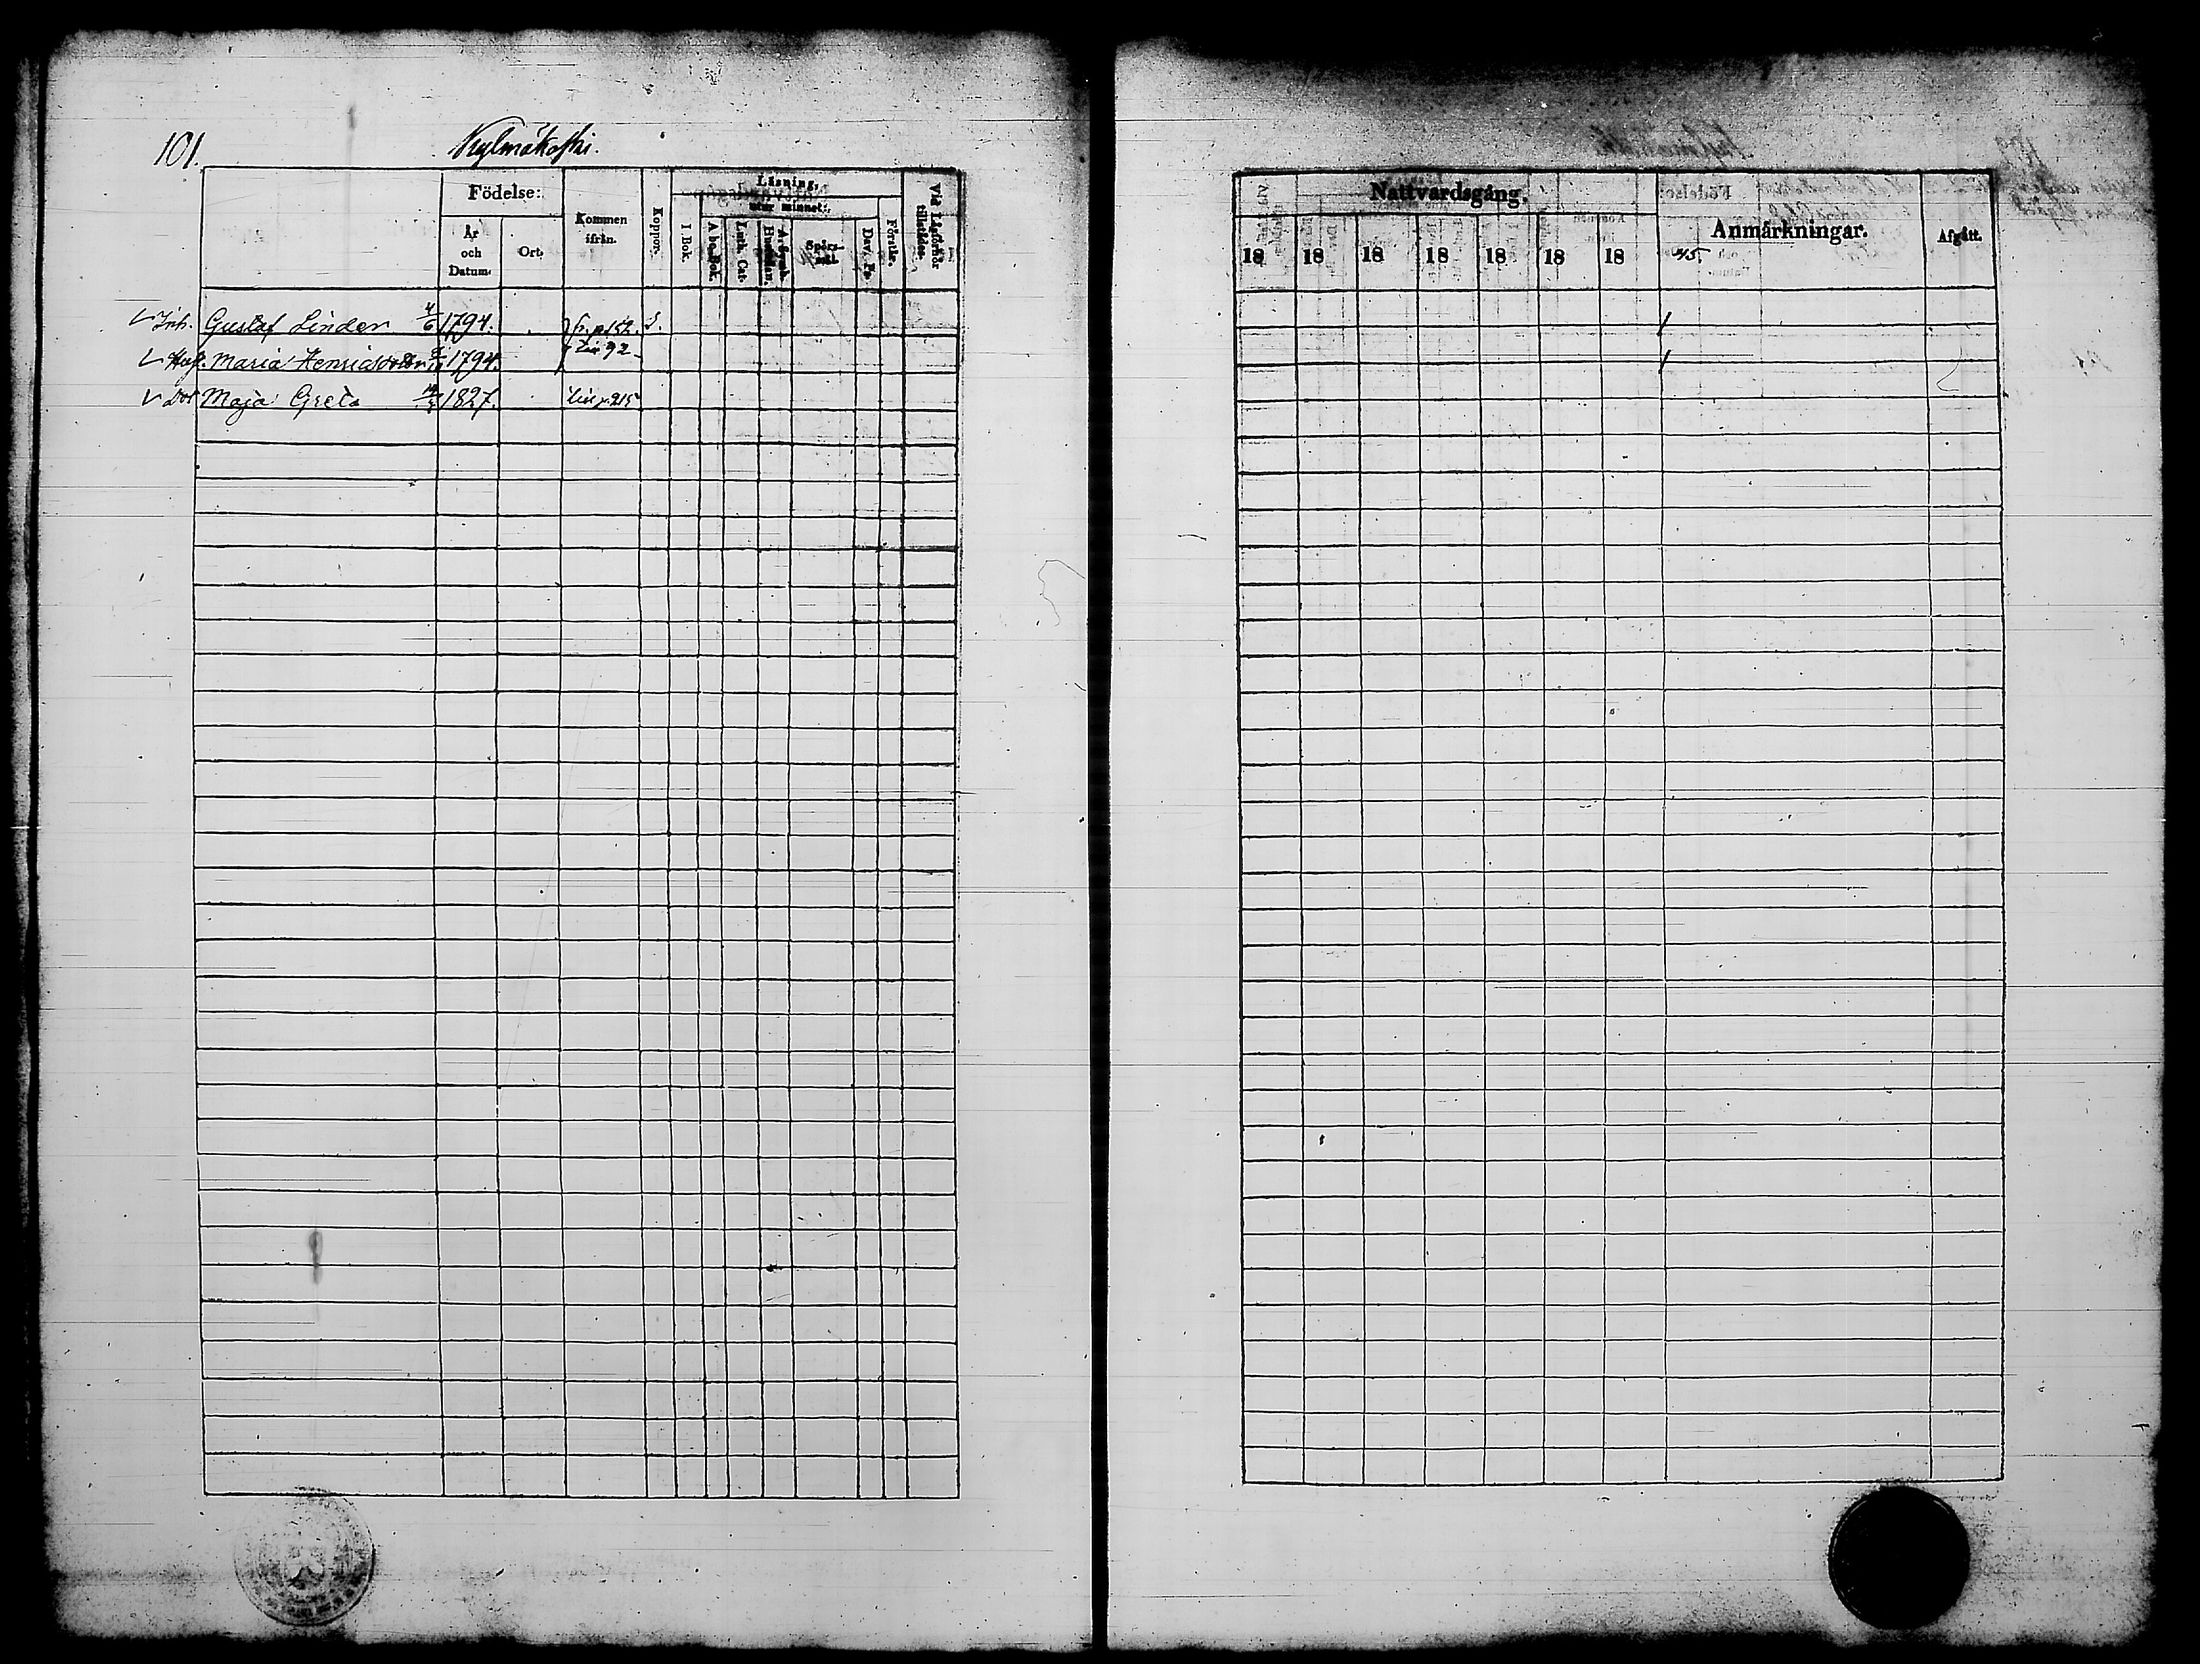 101.
Kylmäkoski.
Födelse:
År och Datum.
Ort.
Kommen ifrån.
Koppor.
Läsning,
utur minnet:
I Bok.
Abc-Bok.
Luth. Cat.
Spörsmål.
Dav. Ps.
Förstår.
Vid Läsförhör tillstädes.
Inh. Gustaf Linder 4/6 1794. fr. p. 152.
Maria Henricsdotter 1794. 92
Dot Maja Greta 1827. 215
Nattvardsgång.
18 18 18 18 18 18 18 45.
Anmärkningar.
Afgått.